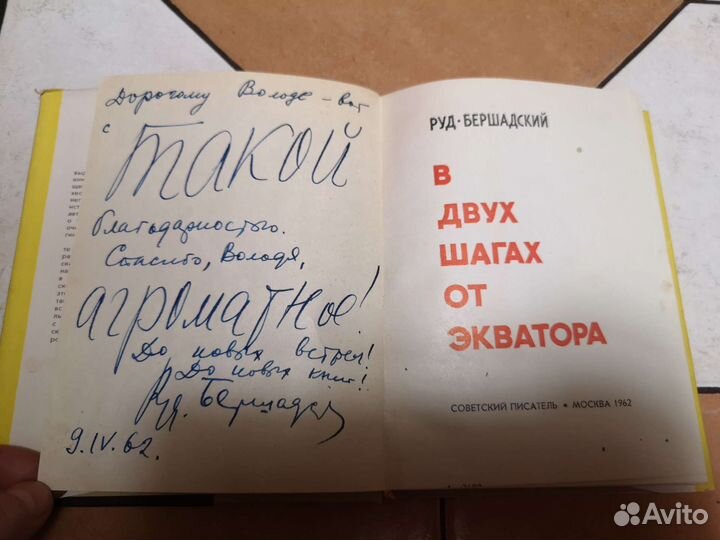 Дорогому Володе – вот
с
ТАКОЙ
благодарностью.
Спасибо, Володя,
агромадное!
До новых встреч!
До новых книг!
Руд. Бершадск
9.IV.62.
РУД·БЕРШАДСКИЙ
В
ДВУХ
ШАГАХ
ОТ
ЭКВАТОРА
СОВЕТСКИЙ ПИСАТЕЛЬ • МОСКВА 1962
Avito